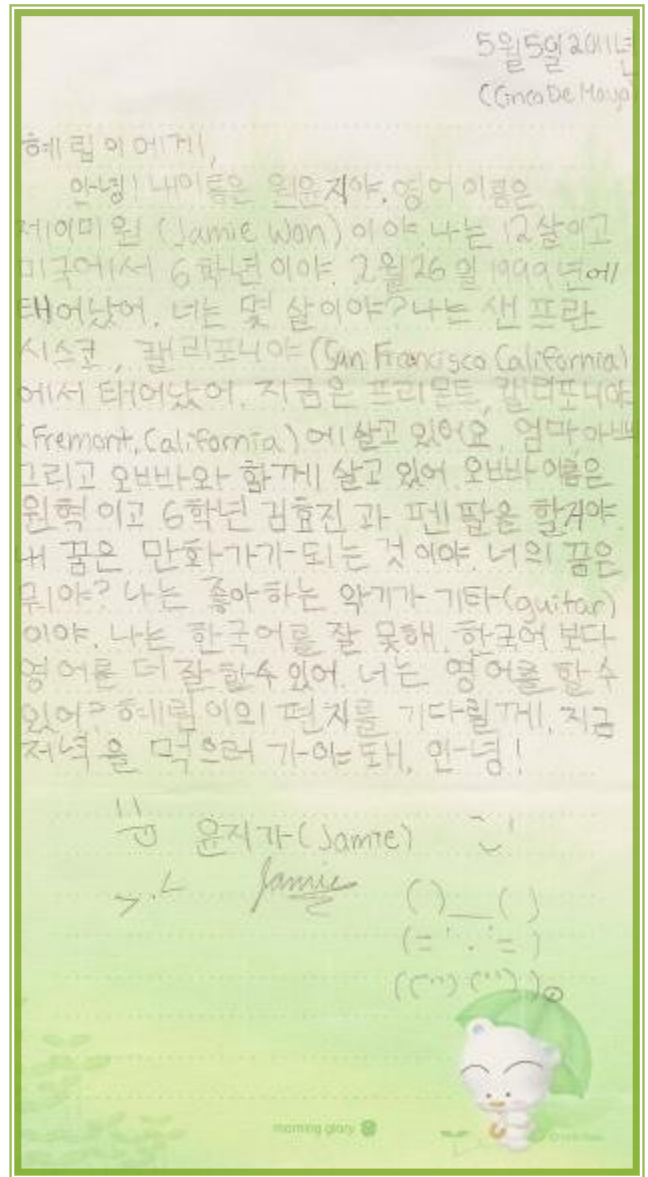 5월5일2011년
(Cinco De Mayo)
혜림이에게,
안녕! 내이름은 원윤지야. 영어 이름은
제이미 원 (Jamie Won) 이야. 나는 12살이고
미국에서 6학년이야. 2월26일 1999년에
태어났어. 너는 몇 살이야? 나는 샌프란
시스코, 캘리포니아 (San Francisco California)
에서 태어났어. 지금은 프리몬트, 캘리포니아
(Fremont, California) 에 살고 있어요. 엄마, 아빠
그리고 오빠와 함께 살고 있어. 오빠 이름은
원혁 이고 6학년 김효진 과 펜팔을 할거야.
내 꿈은 만화가가 되는 것이야. 너의 꿈은
뭐야? 나는 좋아하는 악기가 기타(guitar)
이야. 나는 한국어를 잘 못해. 한국어 보다
영어를 더 잘 할수 있어. 너는 영어를 할수
있어? 혜림이의 편지를 기다릴게. 지금
저녁을 먹으러 가야돼. 안녕!
윤지가 (Jamie)
Jamie
()__()
(='.'=)
((")(")).
morning glory